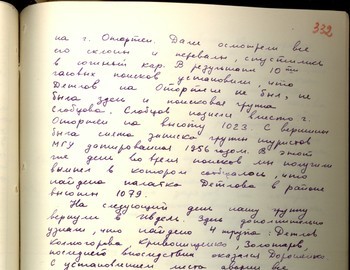 332
на г. Отортен. Далее осмотрели все
его склоны и перевалы, спустились
в южный кар. В результате 10ти
часовых поисков установили что
Дятлов на Отортене не был, не
была здесь и поисковая группа
Слобцова. Слобцов попал вместо г.
Отортен на высоту 1023. С вершины
была снята записка группы туристов
МГУ датированная 1956 годом. В этот
же день во время поисков мы получили
вымпел в котором сообщалось, что
найдена палатка Дятлова в районе
высоты 1079.
На следующий день нашу группу
вернули в Ивдель. Здесь дополнительно
узнали, что найдено 4 трупа: Дятлов
Колмогорова Кривонищенко, Золотарев,
последнего впоследствии оказался Дорошенко
С установлением места аварии все